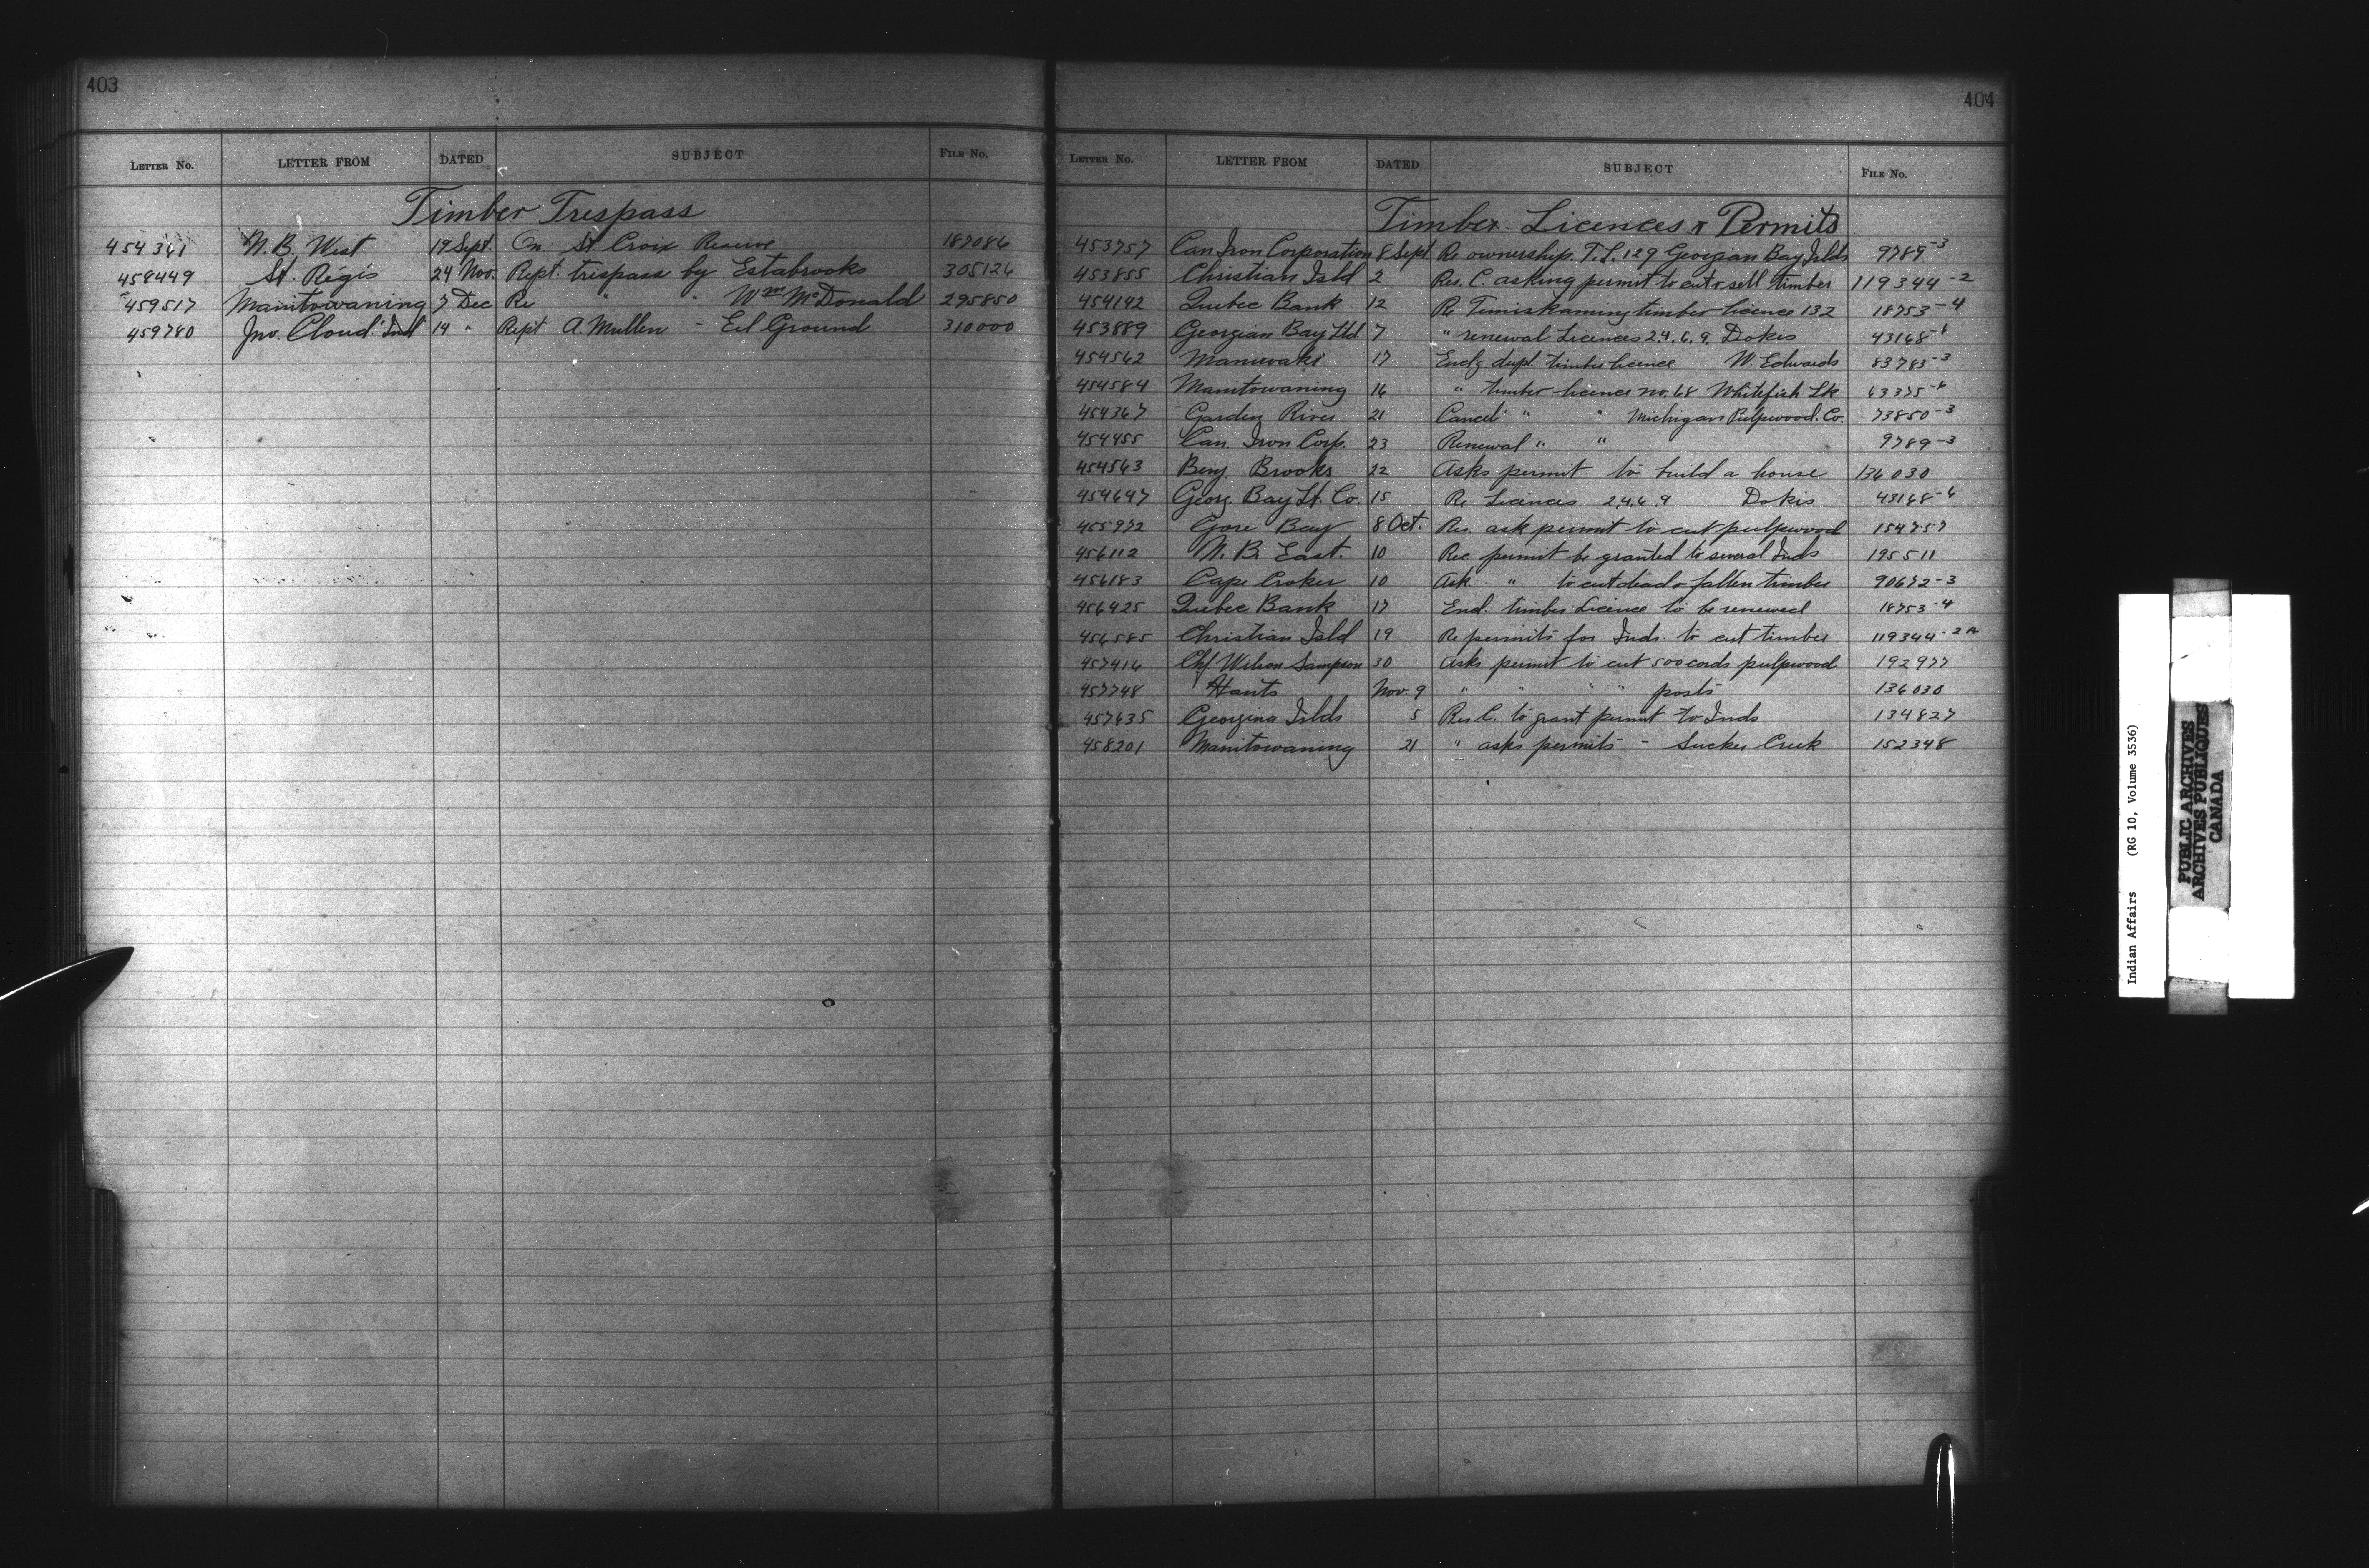 403
LETTER No. LETTER FROM DATED SUBJECT FILE No.
Timber Trespass
454361 N. B. West 19 Sept. On St. Croix Reserve 187086
458449 St. Regis 24 Nov. Rept. trespass by Estabrooks 305126
459517 Manitowaning 7 Dec Re " " Wm McDonald 295850
459780 Jno. Cloud "Ind" 14 " Rept A. Mullen - Eel Ground 310000
404
LETTER No. LETTER FROM DATED SUBJECT FILE No.
Timber Licences & Permits
453757 Can Iron Corporation 8 Sept Re ownership. T.L. 129 Georgian Bay Islds 9789-3
453855 Christian Isld 2 Res. C. asking permit to cut & sell timber 119344-2
454142 Quebec Bank 12 Re Timiskaming timber licence 132 18753-4
453889 Georgian Bay Ltd 7 " renewal Licences 2.4.6.9. Dokis 43168-6
454562 Maniwaki 17 Enclg dupl. timber licence W. Edwards 83783-3
454584 Manitowaning 16 " timber licence no. 68 Whitefish Lk 63375-6
454367 Garden River 21 Cancel " " Michigan Pulpwood. Co. 73850-3
454455 Can. Iron Corp. 23 Renewal " " 9789-3
454563 Benj. Brooks 22 Asks permit to build a house 136030
454647 Georg. Bay Lt. Co. 15 Re Licences 2.4.6.9 Dokis 43168-6
455972 Gore Bay 8 Oct. Res. ask permit to cut pulpwood 154757
456112 N. B. East. 10 Rec permit be granted to several Inds 195511
456183 Cape Croker 10 Ask " to cut dead & fallen timber 90672-3
456425 Quebec Bank 17 Encl. timber Licence to be renewed 18753-4
456585 Christian Isld 19 Re permits for Inds. to cut timber 119344-2A
457416 Chf Wilson Sampson 30 Asks permit to cut 500 cords pulpwood 192977
457748 Hants Nov. 9 " " " " posts 136030
457635 Georgina Islds 5 Res C. to grant permit to Inds 134827
458201 Manitowaning 21 " asks permits - Sucker Creek 152348
Indian Affairs (RG 10, Volume 3536)
PUBLIC ARCHIVES
ARCHIVES PUBLIQUES
CANADA